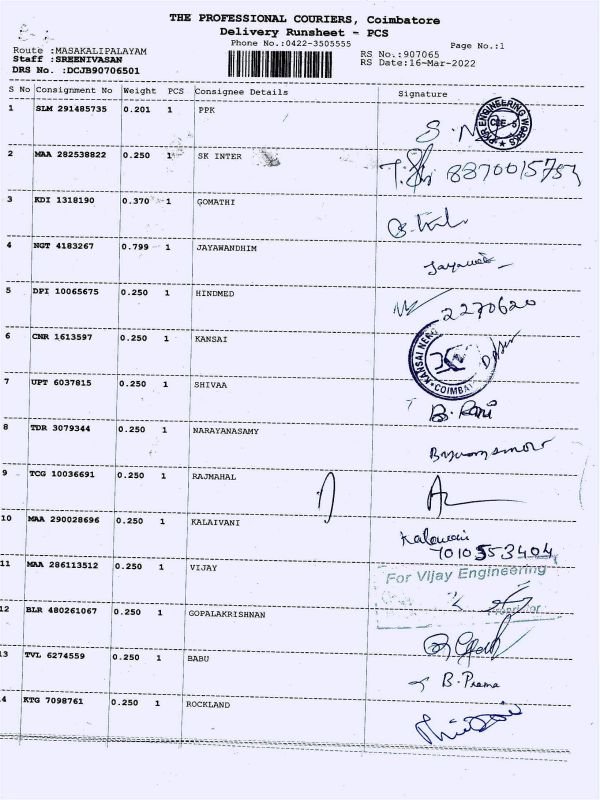 THE PROFESSIONAL COURIERS, Coimbatore
Delivery Runsheet - PCS
Phone No.:0422-3505555
Page No.:1
Route :MASAKALIPALAYAM
RS No.:907065
Staff :SREENIVASAN
RS Date:16-Mar-2022
DRS No. :DCJB90706501
S No Consignment No Weight PCS Consignee Details Signature
1 SLM 291485735 0.201 1 PPK
2 MAA 282538822 0.250 1 SK INTER 8870015753
3 KDI 1318190 0.370 1 GOMATHI
4 NGT 4183267 0.799 1 JAYAWANDHIM
5 DPI 10065675 0.250 1 HINDMED 2270620
6 CNR 1613597 0.250 1 KANSAI
7 UPT 6037815 0.250 1 SHIVAA B. Rani
8 TDR 3079344 0.250 1 NARAYANASAMY
9 TCG 10036691 0.250 1 RAJMAHAL
10 MAA 290028696 0.250 1 KALAIVANI
7010553404
11 MAA 286113512 0.250 1 VIJAY For Vijay Engineering
12 BLR 480261067 0.250 1 GOPALAKRISHNAN
13 TVL 6274559 0.250 1 BABU B. Prema
14 KTG 7098761 0.250 1 ROCKLAND